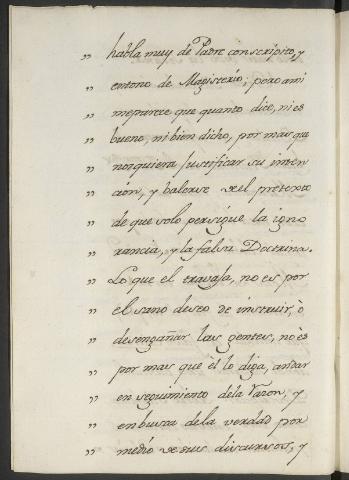 „ habla muy de Padre conscripto, y
„ entono de Magisterio; pero ami
„ meparece que quanto dice, ni es
„ bueno, ni bien dicho, por mas que
„ nos quiera Justificar su inten
„ ción, y balerse del pretexto
„ de que solo persigue la igno
„ rancia, y la falsa Doctrina.
„ Lo que el travaja, no es por
„ el sano deseo de instruir, ò
„ desengañar las gentes, no ès
„ por mas que èl lo diga, andar
„ en seguimiento dela Razon, y
„ en busca dela verdad por
„ medio de sus discursos, y